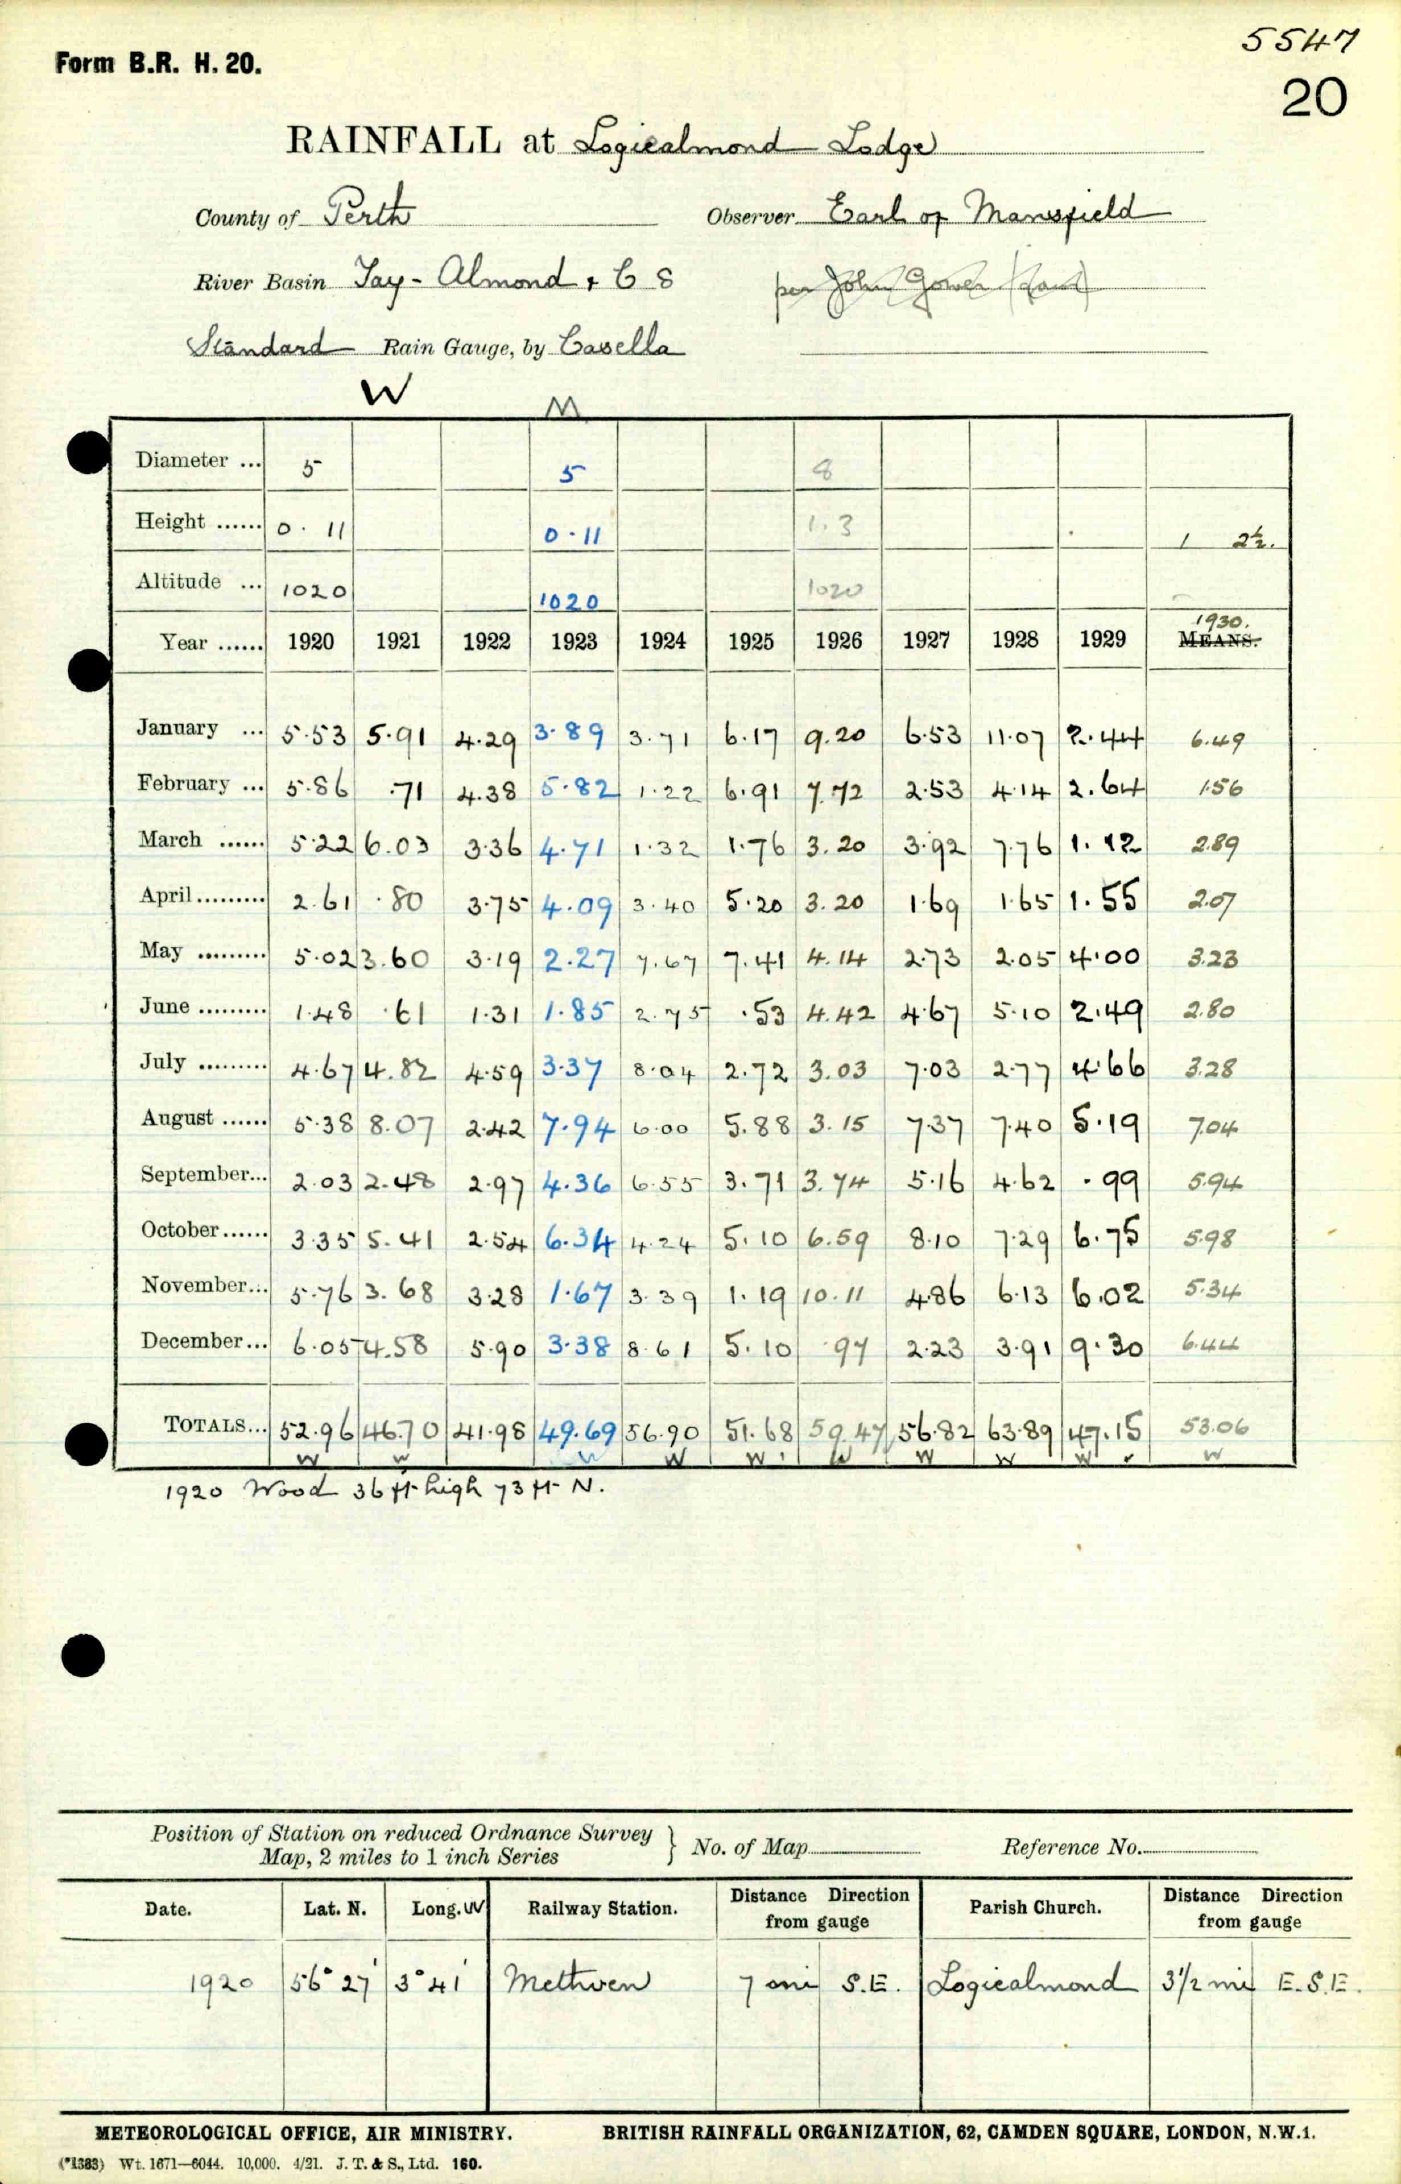 5547
Form B.R. H. 20.
20
RAINFALL at Logiealmond Lodge
County of Perth Observer Earl of Mansfield
River Basin Tay - Almond + C 8 per John Gower
Standard Rain Gauge, by Casella
W M
Diameter ... 5 5 8
Height ...... 0 . 11 0 . 11 1.3 1 2½.
Altitude ... 1020 1020 1020
1930.
Year ...... 1920 1921 1922 1923 1924 1925 1926 1927 1928 1929 MEANS.
January ... 5.53 5.91 4.29 3.89 3.71 6.17 9.20 6.53 11.07 2.44 6.49
February ... 5.86 .71 4.38 5.82 1.22 6.91 7.72 2.53 4.14 2.64 1.56
March ...... 5.22 6.03 3.36 4.71 1.32 1.76 3.20 3.92 7.76 1.12 2.89
April ......... 2.61 .80 3.75 4.09 3.40 5.20 3.20 1.69 1.65 1.55 2.07
May ......... 5.02 3.60 3.19 2.27 7.67 7.41 4.14 2.73 2.05 4.00 3.23
June ......... 1.48 .61 1.31 1.85 2.75 .53 4.42 4.67 5.10 2.49 2.80
July ......... 4.67 4.82 4.59 3.37 8.04 2.72 3.03 7.03 2.77 4.66 3.28
August ...... 5.38 8.07 2.42 7.94 6.00 5.88 3.15 7.37 7.40 5.19 7.04
September... 2.03 2.48 2.97 4.36 6.55 3.71 3.74 5.16 4.62 .99 5.94
October...... 3.35 5.41 2.54 6.34 4.24 5.10 6.59 8.10 7.29 6.75 5.98
November... 5.76 3.68 3.28 1.67 3.39 1.19 10.11 4.86 6.13 6.02 5.34
December... 6.05 4.58 5.90 3.38 8.61 5.10 .97 2.23 3.91 9.30 6.44
TOTALS... 52.96 46.70 41.98 49.69 56.90 51.68 59.47 56.82 63.89 47.15 53.06
W W W W W W W W W W
1920 Wood 36 ft high 73 ft N.
Position of Station on reduced Ordnance Survey
Map, 2 miles to 1 inch Series } No. of Map Reference No.
Date. Lat. N. Long. W Railway Station. Distance Direction from gauge Parish Church. Distance Direction from gauge
1920 56° 27' 3° 41' Methven 7 mi S.E. Logiealmond 3½ mi E.S.E.
METEOROLOGICAL OFFICE, AIR MINISTRY. BRITISH RAINFALL ORGANIZATION, 62, CAMDEN SQUARE, LONDON, N.W.1.
(*1383) Wt. 1671—6044. 10,000. 4/21. J. T. & S., Ltd. 160.